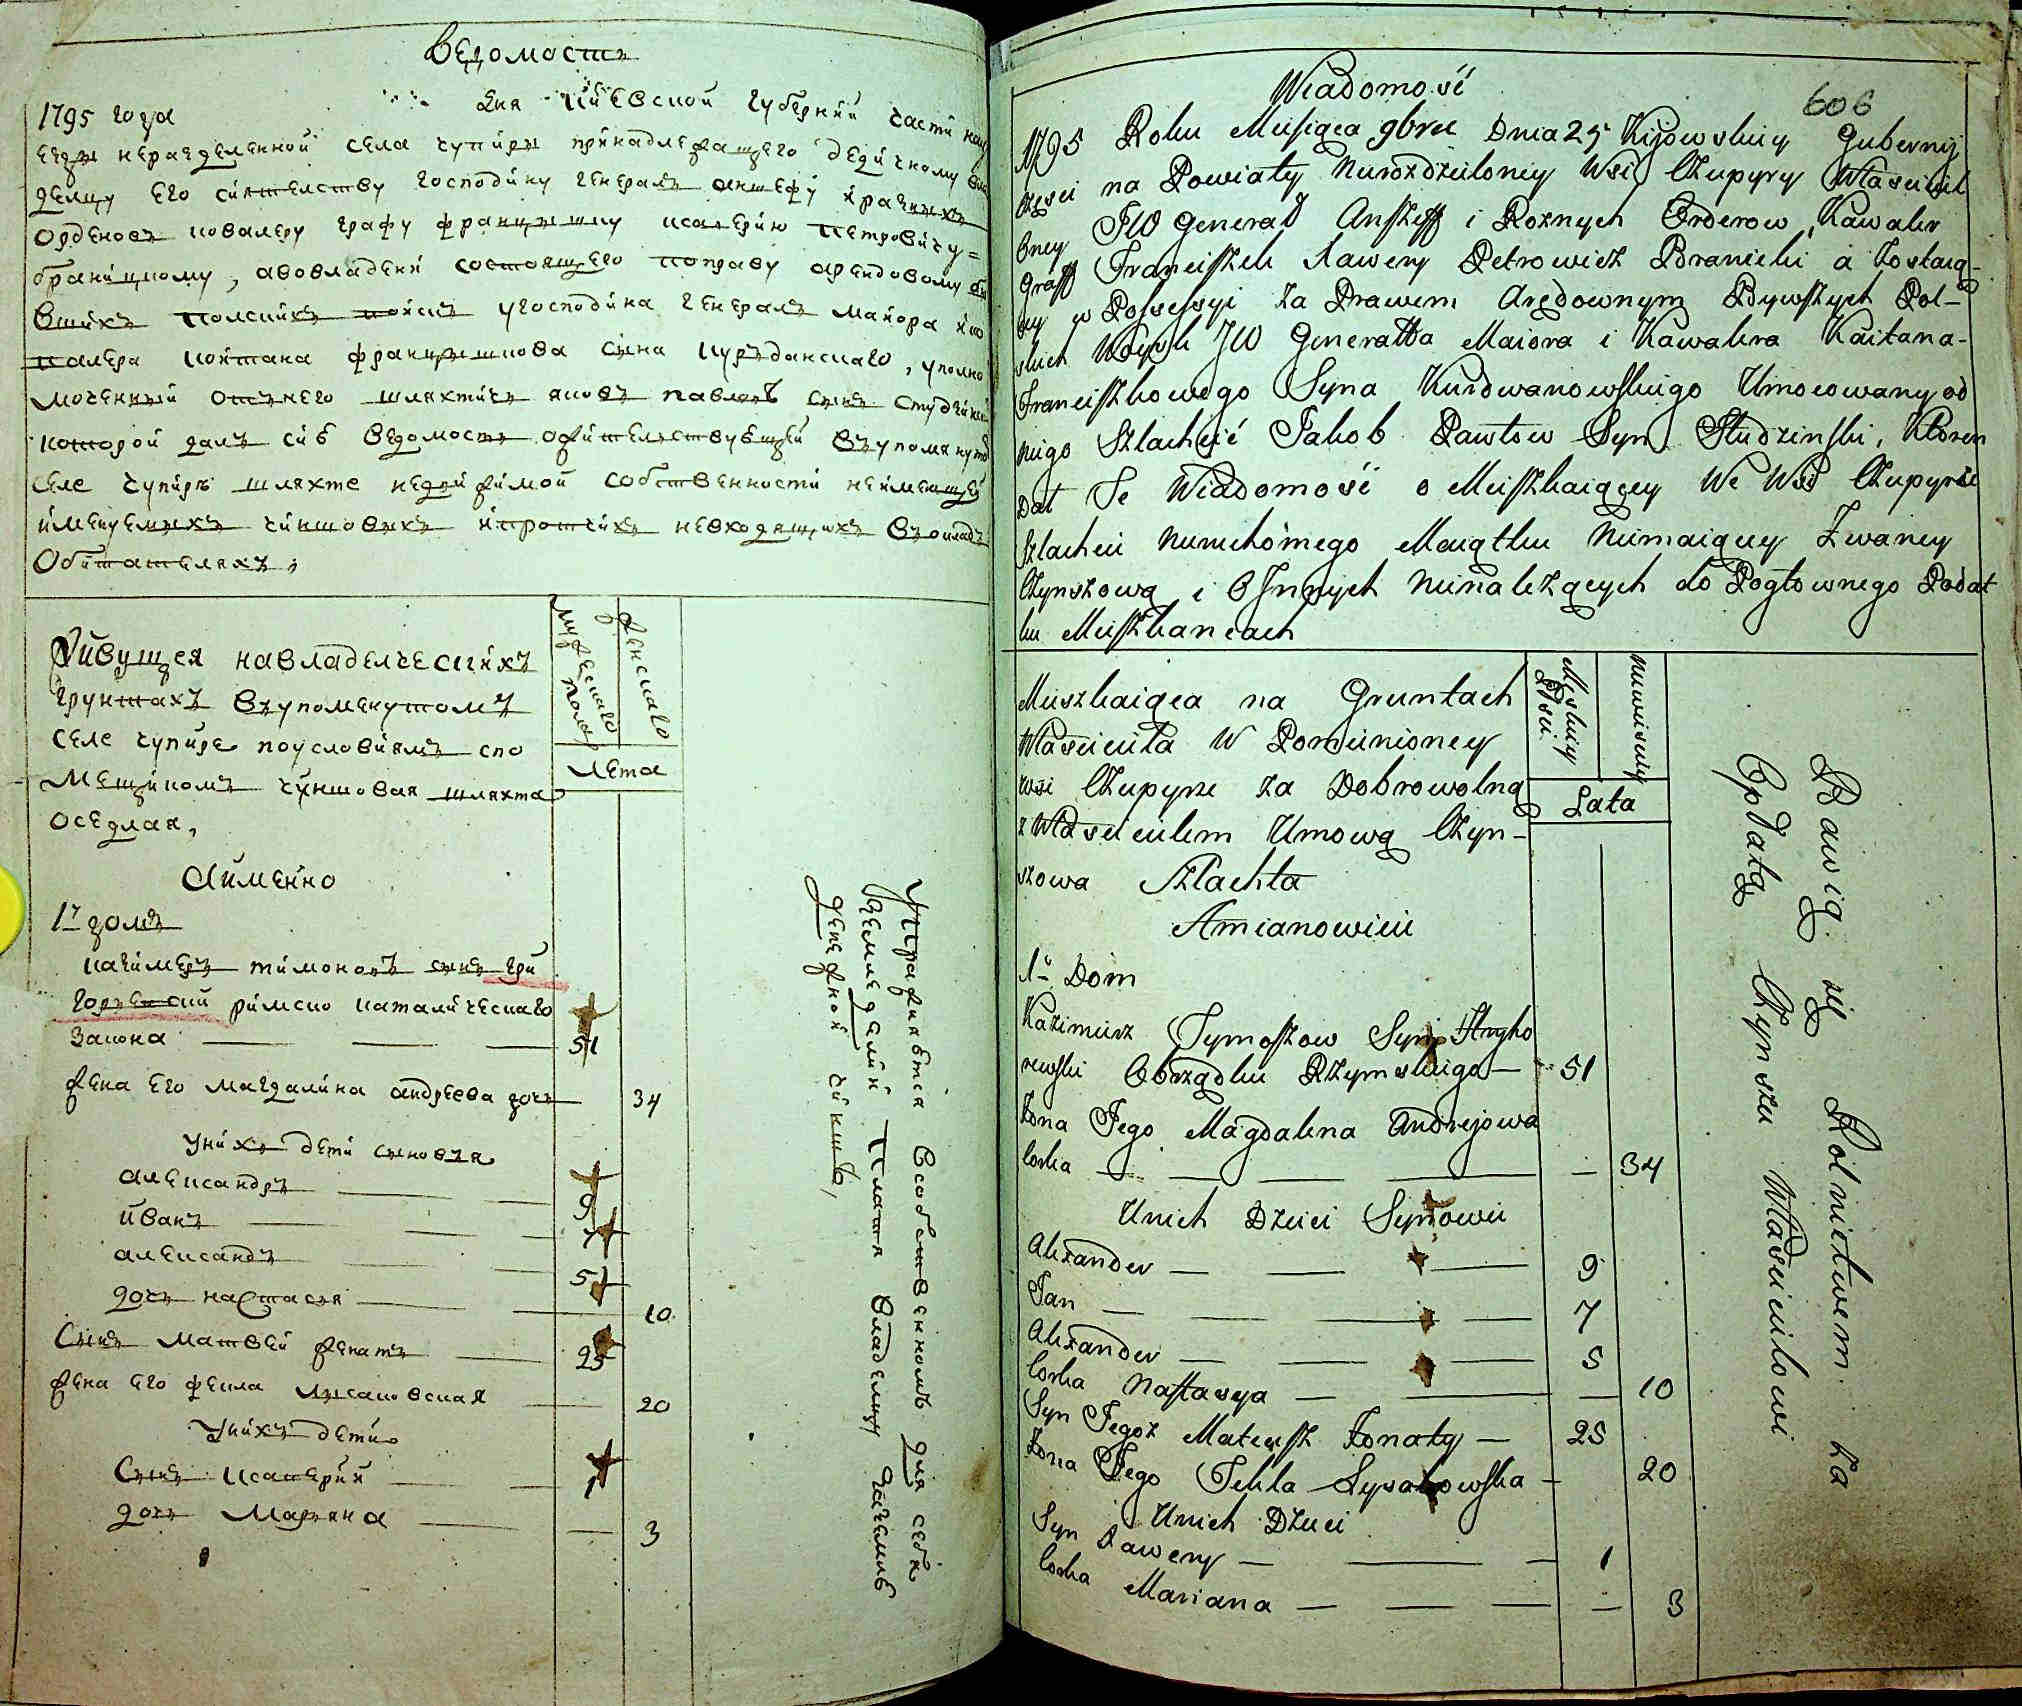 Ведомость
1795 года дня Киевской губернии части на
еезды неразделенной села чупиры принадлежащего дедичному вла
делцу его сиятелству господину генералъ аншефу и разныхъ
орденовъ ковалеру графу францышку ксаверию петровичу
браницкому, авовладени состоящего поправу арендовому бы
вшихъ полскихъ войскъ угосподина генералъ майора и ка
валера коитана францышкова сына курдванскаго, уполно
моченный отънего шляхтичъ яковъ павловъ сынъ студзинский
которой далъ сию ведомость ожителствующей въупомянутой
селе чупиръ шляхте недвижимой собственности неимеющей
именуемыхъ чиншовыхъ ипротчихъ невходящихъ въокладъ
Обитателяхъ,
мужеска пола
женскаго
Лета
Живущая навладелческихъ
грунтахъ въупоменутомъ
селе чупире поусловиямъ спо
мещикомъ чуншовая шляхта
оседлая,
Аименно
1й домъ
казимеръ тимоновъ сынъ гри
горъевский римско католическаго
закона — — — 51
жена его магдалина андреева дочь — 34
униxъ дети сыновья
александръ — — 9
иванъ — — 7
александръ — — 5
дочь настасия — — 10
Сынъ матвей женатъ — 25
жена его фекла лысаковская — 20
унихъ дети
Сынъ ксаверий — — 1
дочь Марьяна — — 3
Упражняются всобственномъ для себя
земледелии платя владелцу
денежной чиншъ,
606
Wiadomość
1795 Roku Miesiąca 9bra Dnia 25 Kijowskiey Gubernij
części na Powiaty Nierozdzieloney Wsi Czupyry Właściciel
oney JW Generał Anszeff i Roznych Orderow Kawaler
Graff Franciszek Xawery Petrowicz Branicki a Zostaią-
cey w Possessyi za Prawem Arędownym Bywszych Pol-
skich Woysk JW Generałła Maiora i Kawalera Kaitana-
Franciszkowego Syna Kurdwanowskiego Umocowany od
niego Szlachcić Jakob Pawłow Syn Studzinski, Ktoren
Dał Te Wiadomość o Mieszkaiącey We Wsi Czupyrze
Szlachci Nieruchomego Maiątku Niemaiącey Zwaney
Czynszową i o Innych Nienależących do Pogłownego Podat
ku Mieszkancach
Męskiey Płci
Niewieściey
Lata
Mieszkaiąca na Gruntach
Właściciela W Pomienioney
wsi Czupyrze za Dobrowolną
z Właścicielem Umową Czyn-
szowa Szlachta
Amianowicie
1. Dom
Kazimierz Tymoszow Syn Hryho
rewski Obrządku Rzymskiego — 51
Zona Jego Magdalena Andrejowa
Corka — — — — 34
Unich Dzieci Synowie
Alexander — — — 9
Jan — — — 7
Alexander — — — 5
Corka Nastasya — — — 10
Syn Jegoż Mateusz Żonaty — 25
Zona Jego Tekla Łysakowska — 20
Unich Dzieci
Syn Xawery — — — 1
Corka Mariana — — — — 3
Bawią się Rolnictwem za
Opłatą Czynszu Właścicielowi